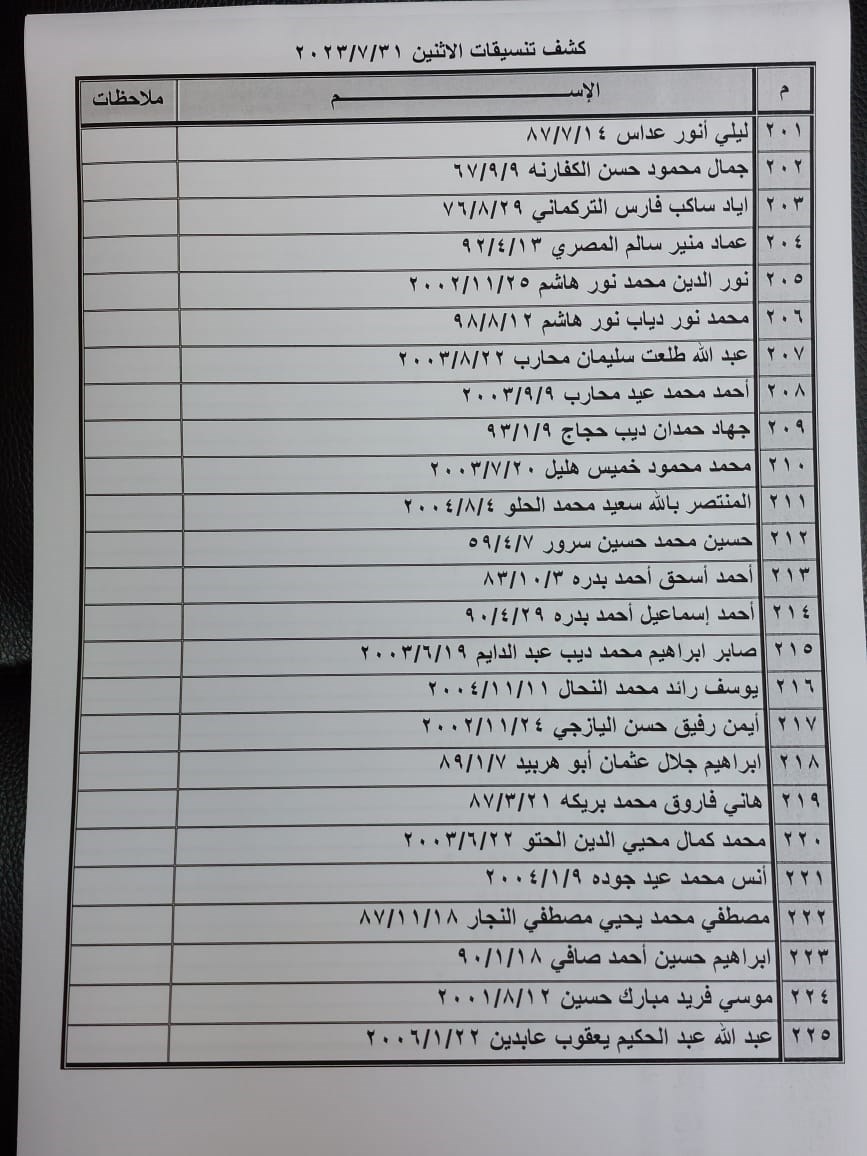 كشف تنسيقات الاثنين ٢٠٢٣/٧/٣١
م الإســـم ملاحظات
٢٠١ ليلي أنور عداس ٨٧/٧/١٤
٢٠٢ جمال محمود حسن الكفارنه ٦٧/٩/٩
٢٠٣ اياد ساكب فارس التركماني ٧٦/٨/٢٩
٢٠٤ عماد منير سالم المصري ٩٢/٤/١٣
٢٠٥ نور الدين محمد نور هاشم ٢٠٠٢/١١/٢٥
٢٠٦ محمد نور دياب نور هاشم ٩٨/٨/١٢
٢٠٧ عبد الله طلعت سليمان محارب ٢٠٠٣/٨/٢٢
٢٠٨ أحمد محمد عيد محارب ٢٠٠٣/٩/٩
٢٠٩ جهاد حمدان ديب حجاج ٩٣/١/٩
٢١٠ محمد محمود خميس هليل ٢٠٠٣/٧/٢٠
٢١١ المنتصر بالله سعيد محمد الحلو ٢٠٠٤/٨/٤
٢١٢ حسين محمد حسين سرور ٥٩/٤/٧
٢١٣ أحمد أسحق أحمد بدره ٨٣/١٠/٣
٢١٤ أحمد إسماعيل أحمد بدره ٩٠/٤/٢٩
٢١٥ صابر ابراهيم محمد ديب عبد الدايم ٢٠٠٣/٦/١٩
٢١٦ يوسف رائد محمد النحال ٢٠٠٤/١١/١١
٢١٧ أيمن رفيق حسن اليازجي ٢٠٠٢/١١/٢٤
٢١٨ ابراهيم جلال عثمان أبو هربيد ٨٩/١/٧
٢١٩ هاني فاروق محمد بريكه ٨٧/٣/٢١
٢٢٠ محمد كمال محيي الدين الحتو ٢٠٠٣/٦/٢٢
٢٢١ أنس محمد عيد جوده ٢٠٠٤/١/٩
٢٢٢ مصطفي محمد يحيي مصطفي النجار ٨٧/١١/١٨
٢٢٣ ابراهيم حسين أحمد صافي ٩٠/١/١٨
٢٢٤ موسي فريد مبارك حسين ٢٠٠١/٨/١٢
٢٢٥ عبد الله عبد الحكيم يعقوب عابدين ٢٠٠٦/١/٢٢